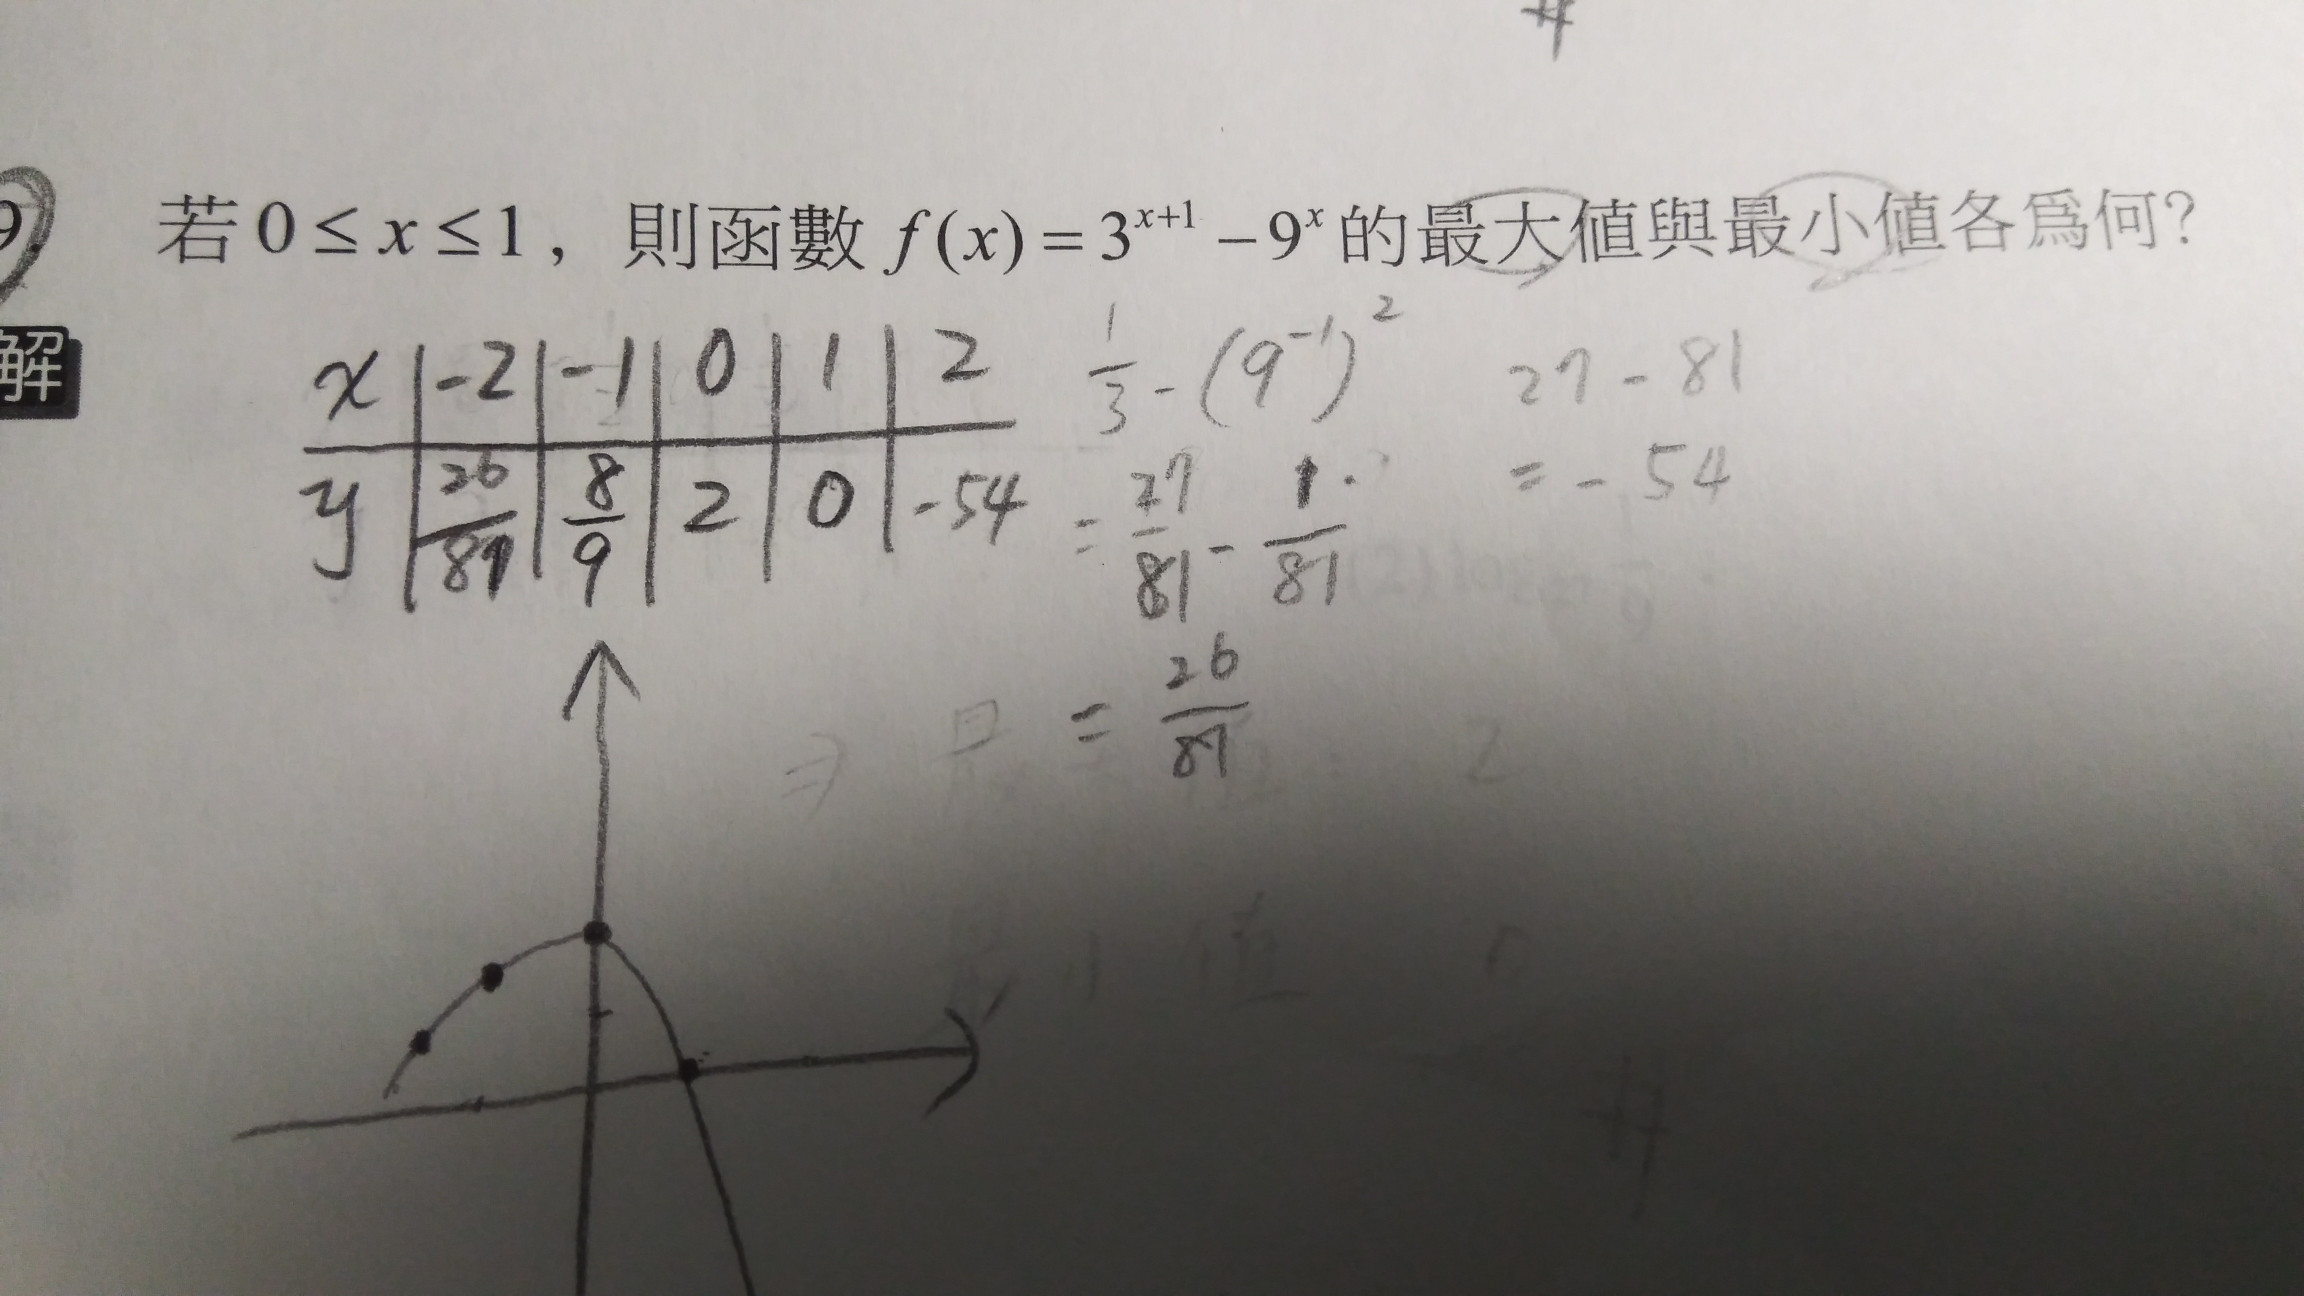 9.
若 0 ≤ x ≤ 1，則函數 f(x) = 3^{x+1} − 9^x 的最大值與最小值各爲何?
解
x | -2 | -1 | 0 | 1 | 2
y | 26/81 | 8/9 | 2 | 0 | -54
1/3 - (9^{-1})^2
= 27/81 - 1/81
= 26/81
27 - 81
= - 54